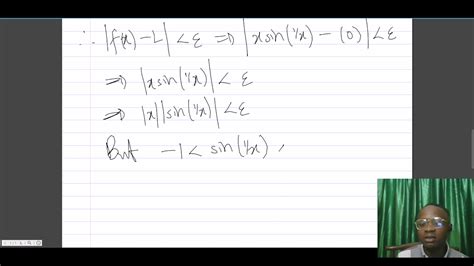 ∴ |f(x) - L| < ε ⇒ |x sin(1/x) - (0)| < ε
⇒ |x sin(1/x)| < ε
⇒ |x||sin(1/x)| < ε
But -1 < sin(1/x)